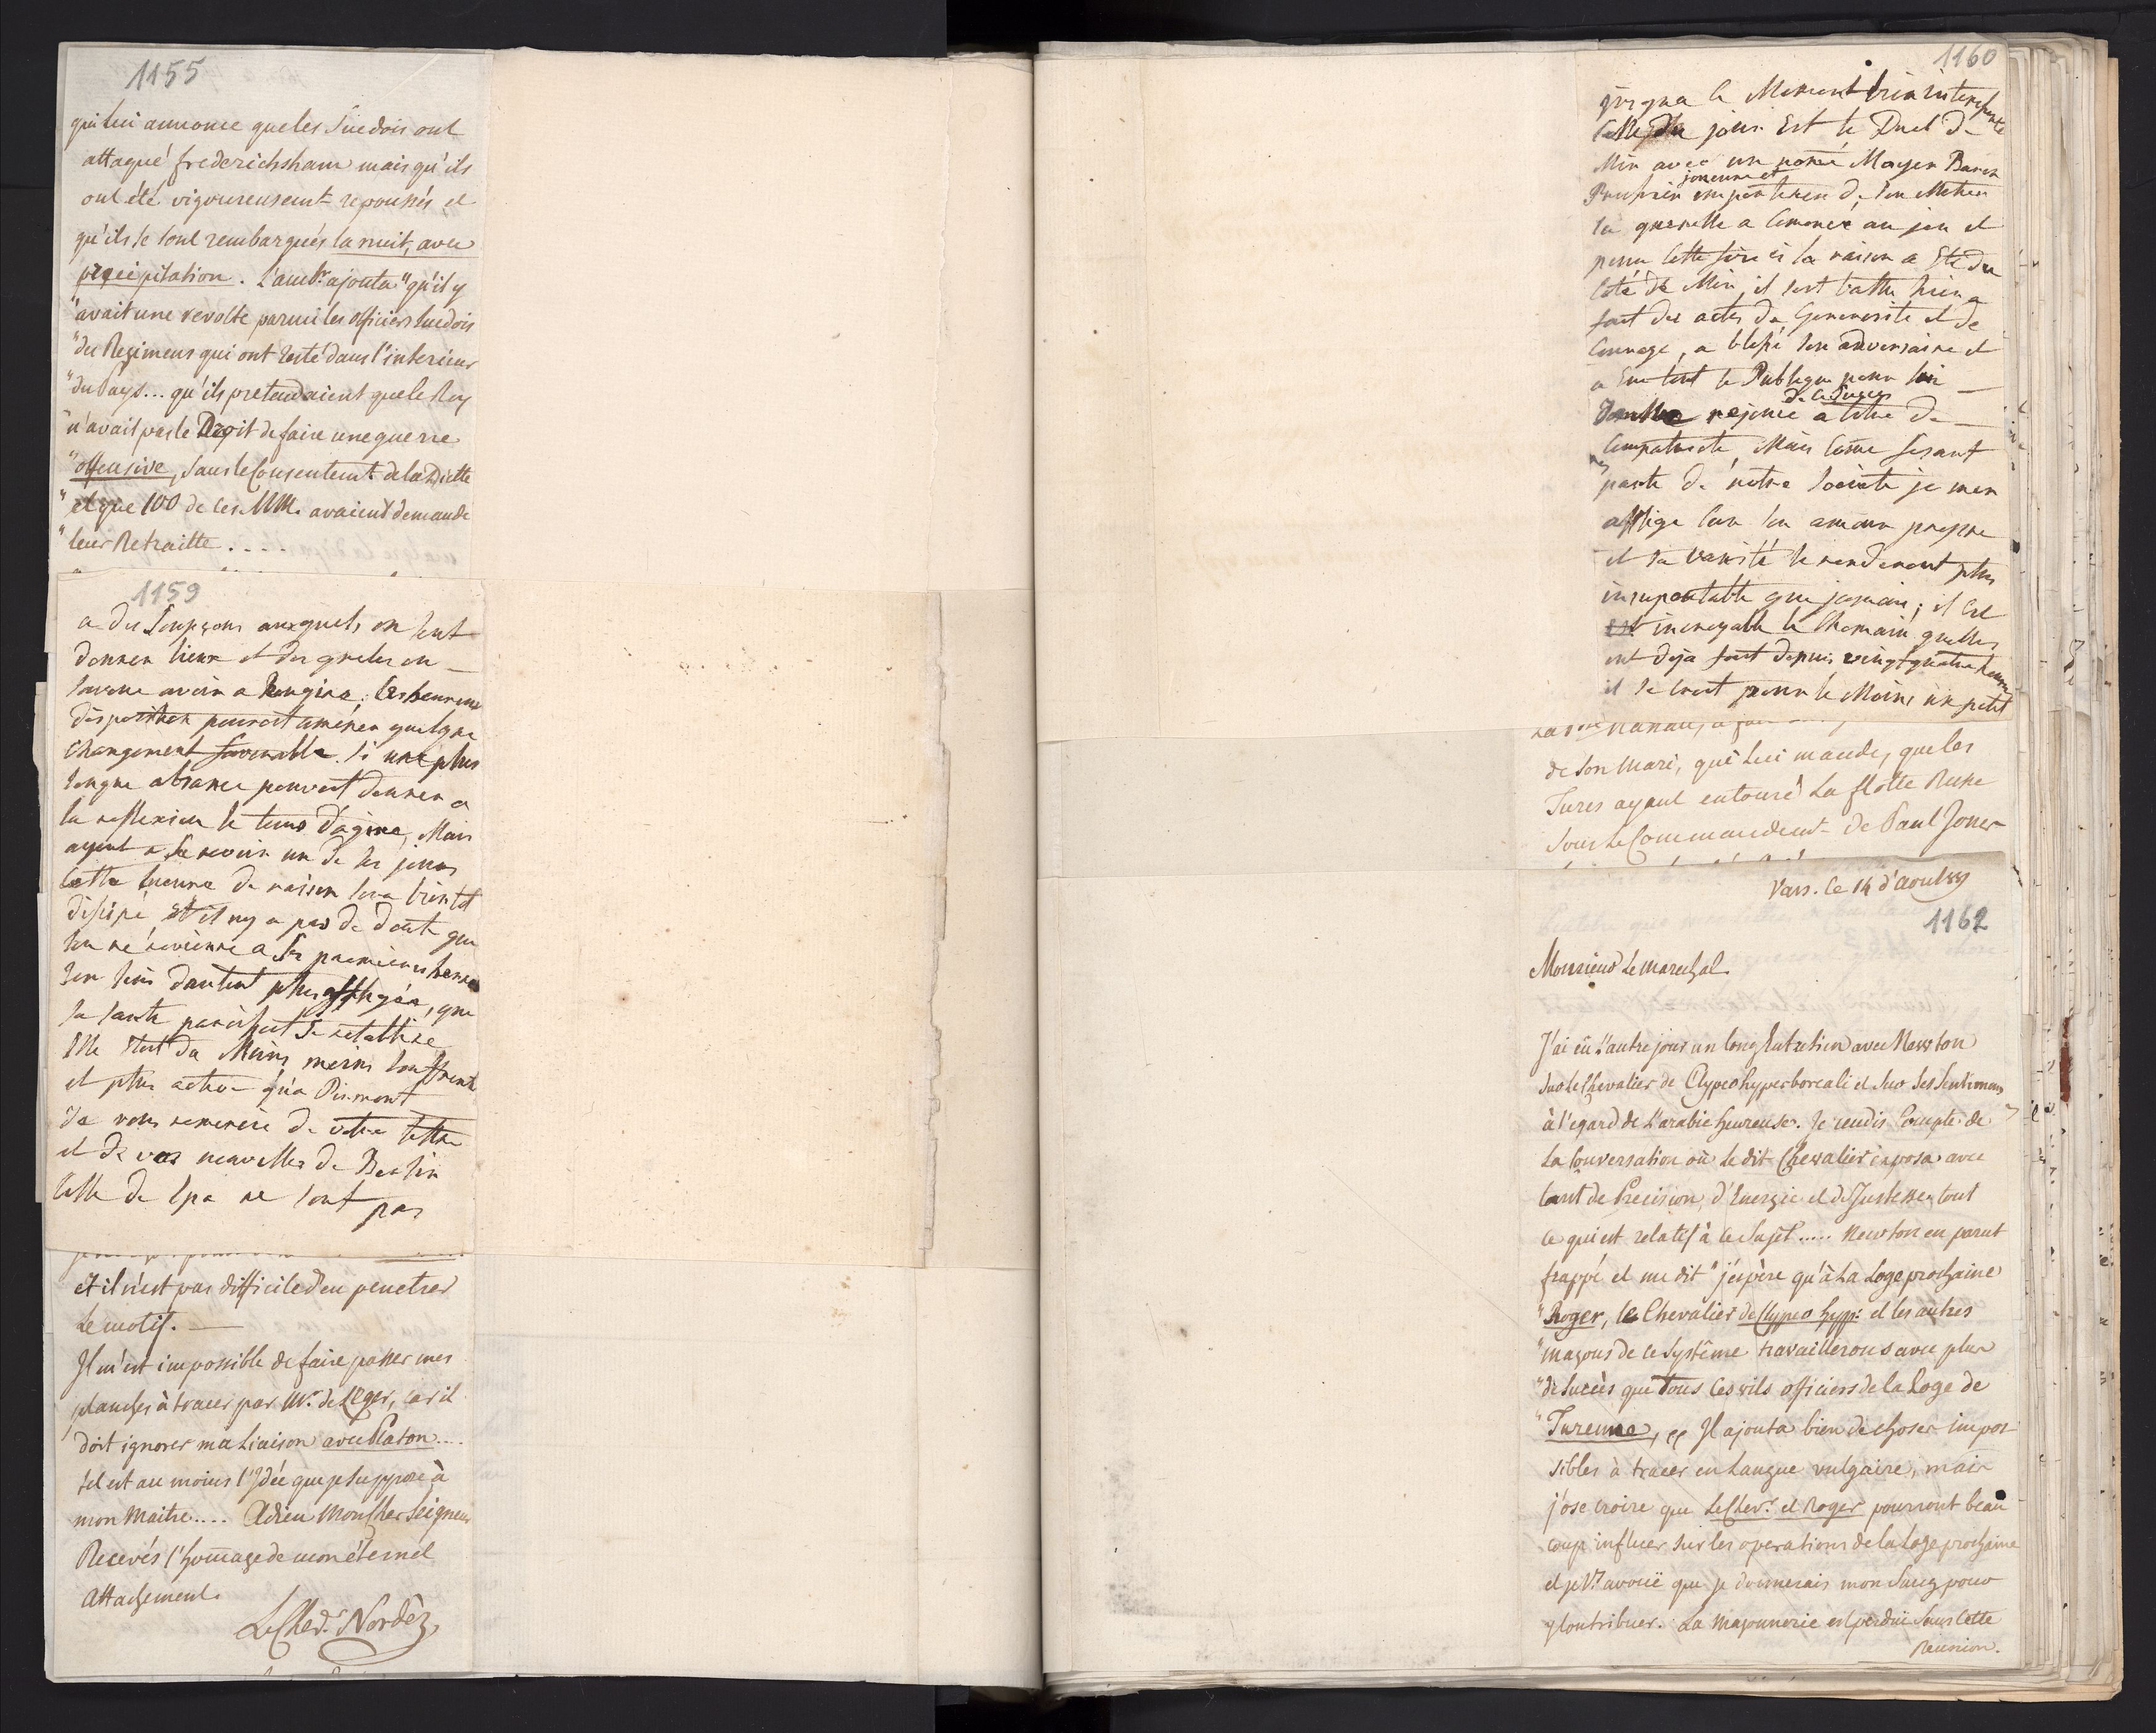 1155
qui lui annonce que les Suedois ont
attaqué frederichsham mais qu'ils
ont été vigoureusement repoussés et
qu'ils se sont rembarqués la nuit, avec
precipitation. L'ambr. ajouta "qu'il y
"avait une revolte parmi les officiers Suedois
"des Regimens qui ont resté dans l'interieur
"du Pays... qu'ils pretendaient que le Roy
"n'avait pas le Droit de faire une guerre
"offensive, sans le Consentemt. de la Diette
"et que 100 de ces MM. avaient demandé
"leur Retraitte....
1159
a des Soupçons auxquels on peut
donner lieux et des quels on
savoue avoir a Rougire; les heureuse
disposition pouroit amener quelque
changement favorable. Si une plus
longue absance pouvoit donner a
la reflexion le tems d'agire, Mais
ayent a se revoir un de ses jours
cette lueure de raison sera bientot
disipé, et il ny a pas de doute que
lon ne revienne a ses premieres
Jen suis dautent plus affligée, que
sa santé paroissoit se retablire
Elle etoit du Moins moins souffrente
et plus active qu'a Pirmont
Je vous remercie de votre lettre
et de vos nouvelles de Berlin
celle de Spa ne sont pas
et il n'est pas difficile d'en penetrer
Le motif. —
Il m'est impossible de faire passer mes
planches à tracer par Mr. de Leger, car il
doit ignorer ma Liaison avec Platon....
tel est au moins l'Idée que je suppose à
mon Maitre.... Adieu Mon Cher Seigneur
Recevés l'hommage de mon éternel
attachement.
Le Chevr. Nordèz
1160
jusqua ce Moment bien interessente
celle du jour Est le Duel de
Min avec un nomé Mayer Baron
Prussien joueure et importeren de son Metier
la querelle a comencé au jeu et
pour cette fois ci la raison a Eté du
coté de Min, il sest battu hier a
fait des actes de Generosité et de
Courage, a blessé son adversaire et
a Eu tout le Publique pour lui —
de ce succes
rejouie a titre de —
Compatriote, Mais come fesant
parti de notre société je men
afflige car son amour propre
et sa vanité le renderont plus
insuportable que jamais; il est
est incroyable le chemain quelles
ont deja fait depuis vingtquatre heures
il se croit pour le Moins un petit
de son Mari, qui lui mande, que les
Turcs ayant entouré La flotte Russe
sous le Commandemt. de Paul Jones
Vars. Ce 14 d'Aout 88
1162
Monsieur Le Marechal.
J'ai eû L'autre jour un long Entretien avec Newton
sur le Chevalier de Clypeo hyperboreali et sur ses sentimens
à l'egard de L'arabie heureuse. Je rendis Compte de
La Conversation où Le dit Chevalier exposa avec
tant de Precision, d'Energie et de Justesse, tout
ce qui est relatif à ce sujet..... Newton en parut
frappé et me dit "j'espère qu'à La Loge prochaine
"Roger, le Chevalier de Clypeo hyp: et les autres
"maçons de ce Systême travaillerons avec plus
"de succès que tous ces vils officiers de la Loge de
"Turenne, Il ajouta bien de choses impos-
sibles à tracer en Langue vulgaire, mais
j'ose croire que Le Chevr. et Roger pourront beau
coup influer sur les operations de la Loge prochaine
et je Vs. avouë que je donnerais mon Sang pour
y Contribuer. La Maçonnerie est perdue sans cette
Reunion.